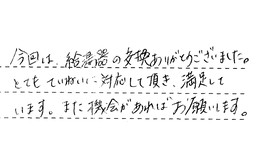 今回は、給湯器の交換ありがとうございました。
とてもていねいに対応して頂き、満足して
います。また機会があればお願いします。